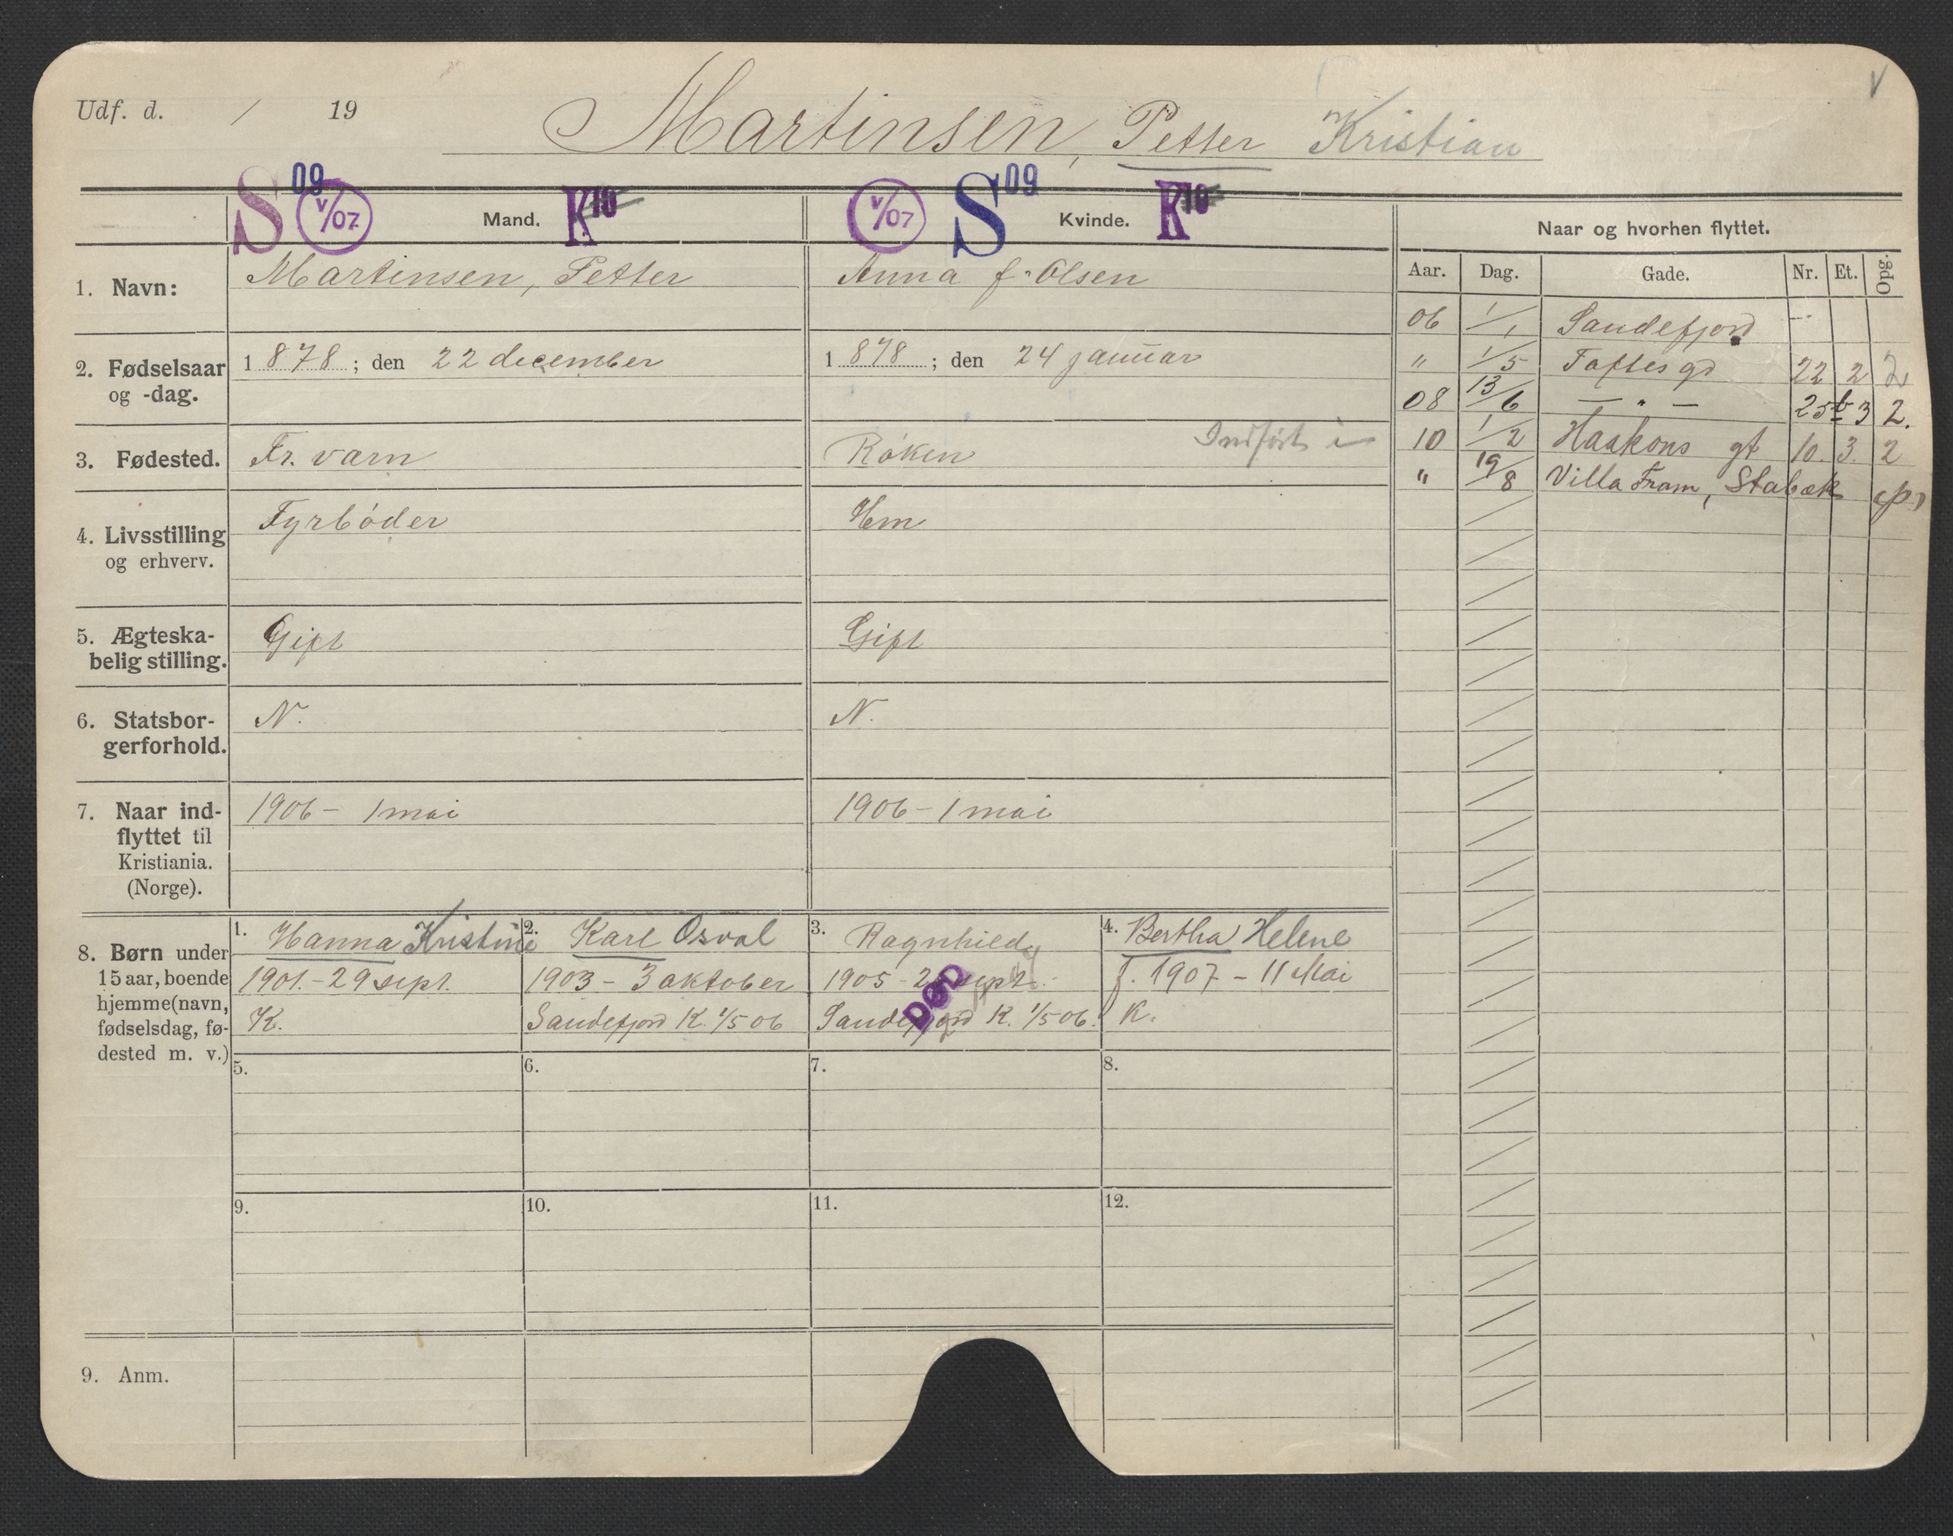 Udf. d. / 19
Martinsen, Petter Kristian
S 09 V/07 Mand. K 10
V/07 S 09 Kvinde. K 10
Naar og hvorhen flyttet.
Aar. Dag. Gade. Nr. Et. Opg.
1. Navn: Martinsen, Petter
Anna f. Olsen
2. Fødselsaar og -dag.
1878; den 22 december
1878; den 24 januar
3. Fødested. Fr. varn
Røken Indført i
4. Livsstilling og erhverv.
Fyrbøder
Hm
5. Ægteska-
belig stilling.
Gift
Gift
6. Statsbor-
gerforhold.
N.
N.
7. Naar ind-
flyttet til
Kristiania.
(Norge).
1906 - 1 mai
1906 - 1 mai
06 1/1 Sandefjord
" 1/5 Toftes gd 22 2 2
08 13/6 — " — 25b 3 2.
10 1/2 Haakons gt 10. 3. 2
" 19/8 Villa Fram, Stabæk (P)
8. Børn under
15 aar, boende
hjemme (navn,
fødselsdag, fø-
dested m. v.)
1. Hanna Kristine
1901. - 29 sept.
K.
2. Karl Osval
1903 - 3 oktober
Sandefjord K. 1/5 06
3. Ragnhild
1905 - 2 sept.
Sandefjord K. 1/5 06.
DØD
4. Bertha Helene
f. 1907 - 11 Mai
K.
5.
6.
7.
8.
9.
10.
11.
12.
9. Anm.